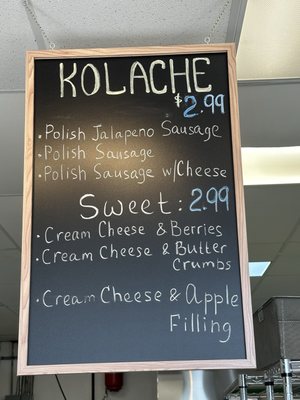 KOLACHE
$2.99
· Polish Jalapeno Sausage
· Polish Sausage
· Polish Sausage w/Cheese
Sweet: 2.99
· Cream Cheese & Berries
· Cream Cheese & Butter
Crumbs
· Cream Cheese & Apple
Filling